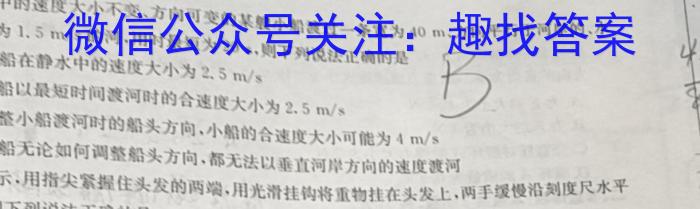 中的速度大小不变,方向可变
微信公众号关注：趣找答案
为1.5 m
则下列说法正确的是
船在静水中的速度大小为2.5 m/s
B
船以最短时间渡河时的合速度大小为2.5 m/s
整小船渡河时的船头方向,小船的合速度大小可能为4 m/s
船无论如何调整船头方向,都无法以垂直河岸方向的速度渡河
示,用指尖紧握住头发的两端,用光滑挂钩将重物挂在头发上,两手缓慢沿刻度尺水平